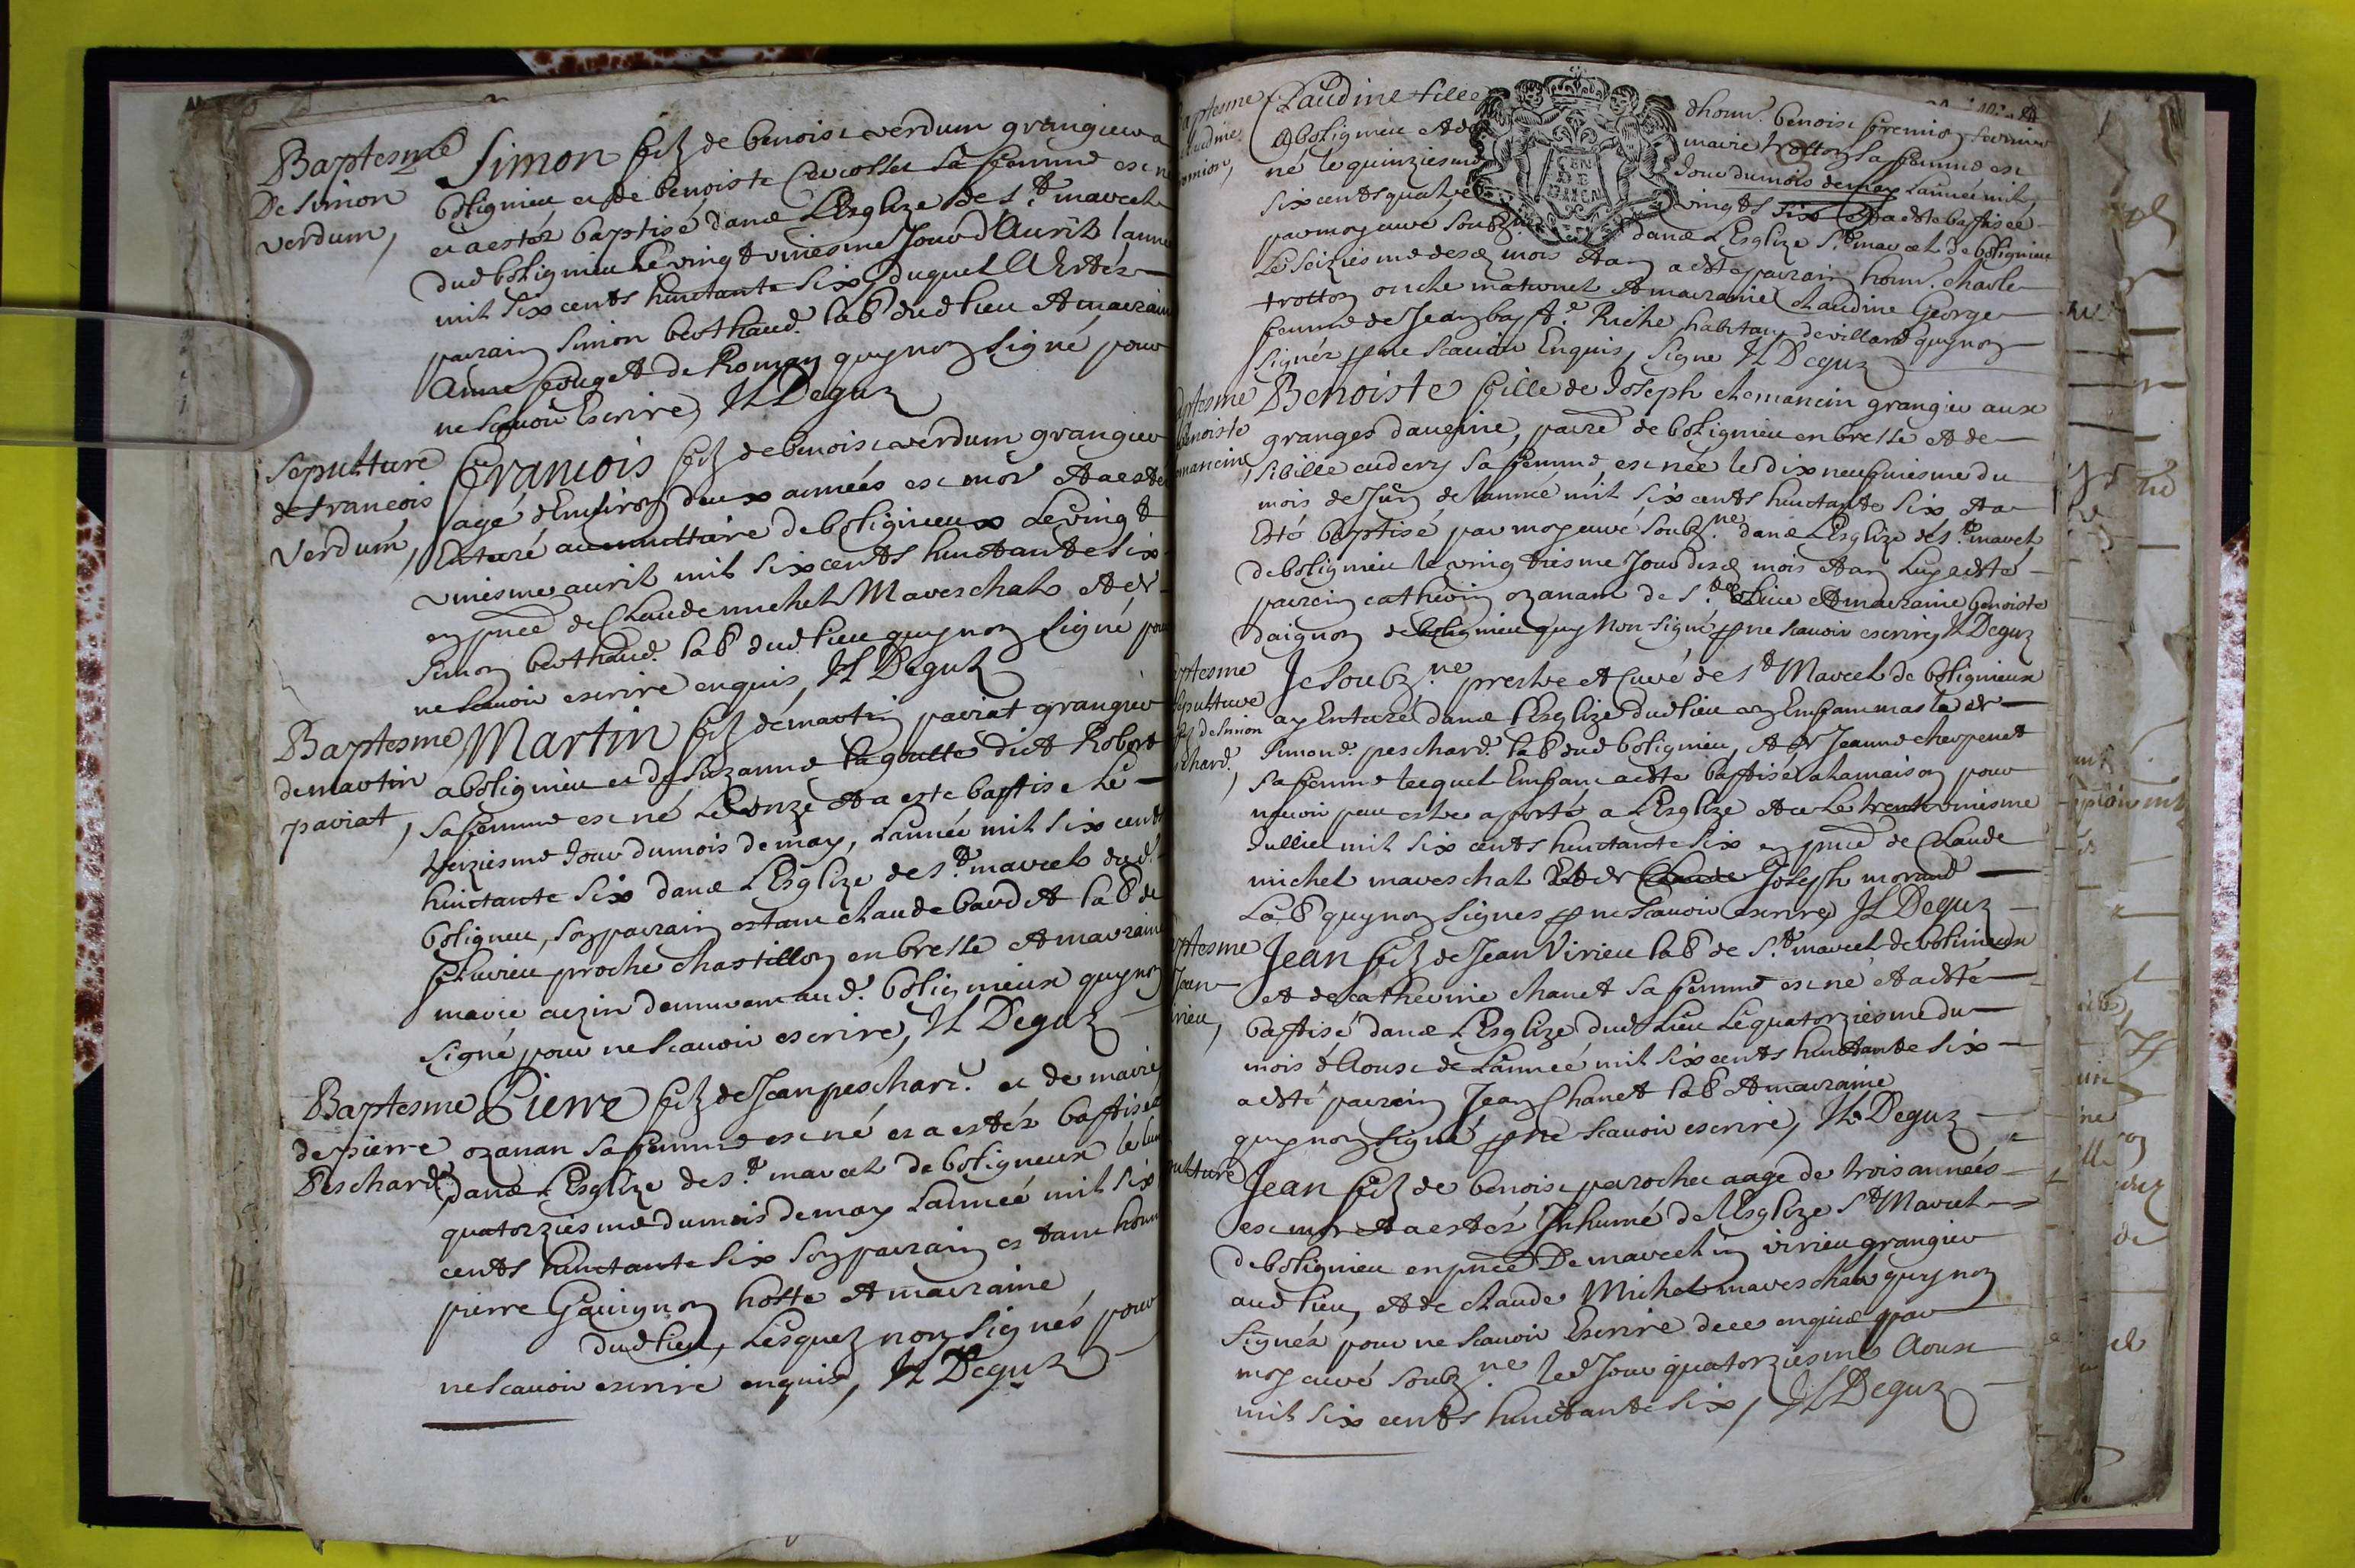 Baptesme
De Simon
verdum,
Simon filz de benoist verdum grangier a
bolignieu et de benoiste sa femme est né
et a estéz baptisé dans L'Esglize de St. marcel
dud bolignieu le vingt uniesme Jour d'Auril l'année
mil six cents huictante six, duquel A Estéz
parrain Simon berthaud. lab. dud lieu et marraine
Anne pouget de Roman quy non signé pour
ne Scauoir Escrire, JL Deguz
Sepulture
de francois
Verdum,
francois filz de benoist verdum grangier
agé d'Enuiron deux années est mort et a esté
Enterré au de boligneux le vingt
uniesme auril mil six cents huictante six
en pnce de Claude michel Mareschal et de
Simon berthaud. lab. dud lieu quy non signé pour
ne scauoir escrire enquis, JL Deguz
Baptesme
de martin
pariat,
Martin filz de martin pariat grangier
a bolignieu et de Suzanne la goutte dict Robert
sa femme est né le onze et a esté baptisé le
treiziesme Jour du mois de may, L'année mil six cents
huictante six dans L'Esglize de St. marcel dud.
bolignieu, son parrain estant claude baudet lab. de
fleurieu proche chastillon en bresse et marraine
marie demurant aud. bolignieux quy non
signé pour ne scauoir escrire, JL Deguz
Baptesme
de pierre
Peschard.
Pierre filz de Jean peschard. et de marie
ozanan sa femme est né et a estéz baptisé
dans L'Esglize de St. marcel de boligneux le
quatorziesme du mois de may L'année mil six
cents huictante six son parrain estant honn.
pierre Gauignon hoste et marraine
dud lieu, Lesquez non signés pour
ne scauoir escrire enquis, JL Deguz
aptesme
laudine
omion,
Claudine fille dhonn. benoist
a bolignieu et de marie trotton sa femme est
né le quinziesme Jour du mois de may L'année mil
six cents quatre vingts six et a esté baptisée
par moy curé soubz.ne dans L'Esglize St. marcel de bolignieu
le seiziesme desd. mois et an a esté parrain honn. charle
trotton oncle maternel et marraine claudine George
femme de Jean bapt.e Riche habitant de villard quy non
signéz p ne scauoir Enquis, signe JL Deguz
aptesme
benoiste
mancin
Benoiste fille de Joseph chemancin grangier aux
granges daueine, paroe. de bolignieu en bresse et de
sibille cudery sa femme est née le dix neufuiesme du
mois de Juin de l'année mil six cents huictante six et a
Esté baptisé par moy curé soubz.ne dans L'Esglize de St. marcel
de bolignieu le vingtiesme Jour desd. mois et an luy a esté
parrain catherin ozanam de St. oliue et marraine benoiste
daignon de bolignieu quy non signé p ne scauoir escrire, JL Deguz
aptesme
sepulture
de simon
chard.
Je soubz.ne prestre et curé de St. Marcel de boligneux
ay Enterré dans l'Esglize dud lieu un Emfant masle de
simond. peschard. lab. dud bolignieu, et de Jeanne cherpenet
sa femme lecquel Emfant a esté baptisé a la maison pour
n'auoir peu estre aporté a L'Esglize et ce le trente uniesme
Jullie mil six cents huictante six en pnce de Claude
michel mareschal Et de Claude Joseph morand
Lab. quy non signes p ne scauoir escrire, JL Deguz
aptesme
Jean
irieu,
Jean filz de Jean Virieu lab. de St. marcel de bolineux
et de catherine chanet sa femme est né et a esté
baptisé dans L'Esglize dud Lieu Le quatorziesme du
mois d'Aoust de L'année mil six cents huictante six
a esté parrain Jean Chanet lab. et marraine
quy non signé p ne scauoir escrire, JL Deguz
ulture
Jean filz de benoist parochet aagé de trois années
est mort et a estéz Inhumé de l'Esglize St. Marcel
de bolignieu en pnce De marcelin virieu grangier
aud lieu, et de claude Michel mareschal quy non
signéz pour ne scauoir Escrire de ce enquis par
moy curé soubz.ne led Jour quatorziesme Aoust
mil six cents huictante six, JL Deguz